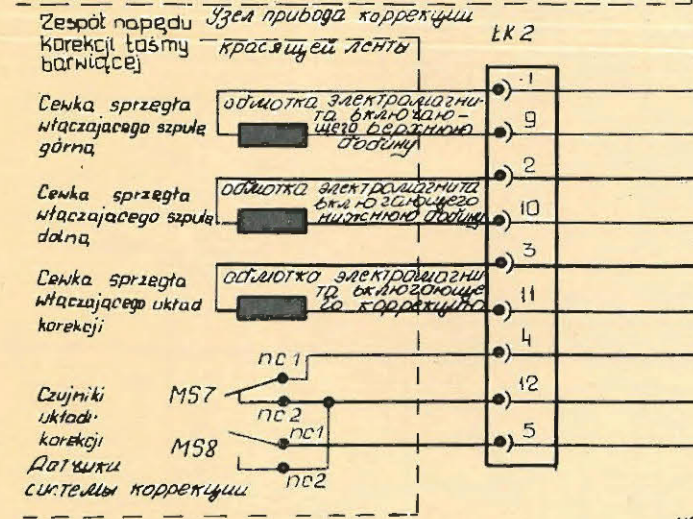 Zespół napędu
korekcji taśmy
barwiącej
Узел привода коррекции
красящей ленты
ŁK 2
Cewka sprzęgła
włączającego szpulę
górną
обмотка электромагни-
та включаю-
щего верхнюю
бобину
1
9
Cewka sprzęgła
włączającego szpulę
dolną
обмотка электромагнита
включающего
нижнюю бобину
2
10
Cewka sprzęgła
włączającego układ
korekcji
обмотка электромагни
та включающе
го коррекцию
3
11
4
12
5
Czujniki
układu
korekcji
Датчики
системы коррекции
MS7
nc1
nc2
MS8
nc1
nc2